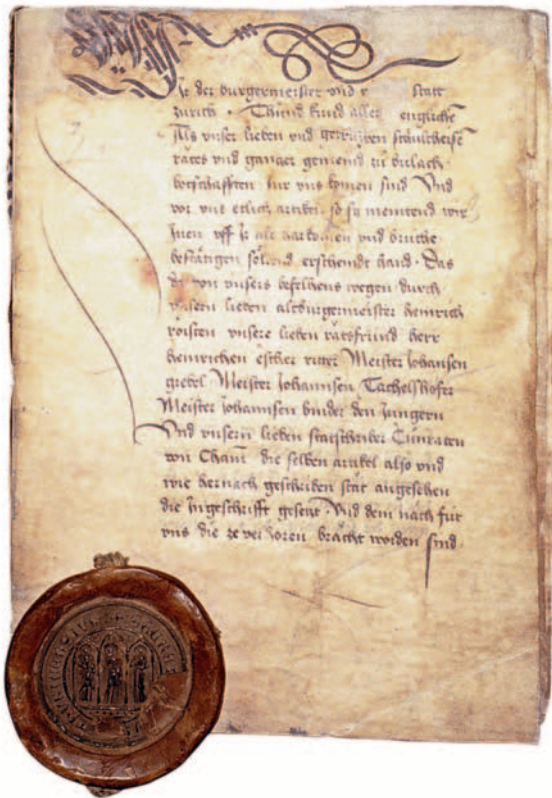 Wir der burgermeister vnd r statt
zurich · Thund kund allermenglichem
Als vnser lieben vnd getruwen schultheisen
rätes vnd gantzer gemeind zu bulach
botschafften fur vns komen sind Vnd
vor vns etlich artikel so sy meintend wir
Inen vff ir alt harkomen vnd brüche
bestätigen söltend erscheindt hand · Das
da von vnsers befelhens wegen durch
vnsern lieben altburgermeister heinrich
roisten vnsere lieben ratsfrund herr
heinrichen escher ritter Meister Johansen
grebel Meister Johannsen Tachelshofer
Meister Johannsen binder den Jungern
Vnd vnsern lieben statschriber Cunraten
von Cham die selben artikel also vnd
wie hernach geschriben stat angesehen
die Ingeschrifft gesetzt · Vnd dem nach fur
vns die ze verhören bracht worden sind ·